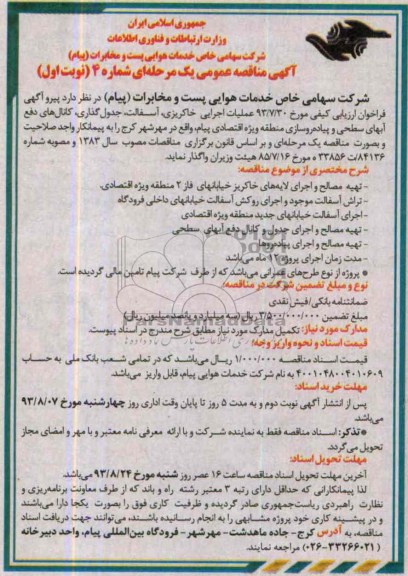 جمهوری اسلامی ایران
وزارت ارتباطات و فناوری اطلاعات
شرکت سهامی خاص خدمات هوایی پست و مخابرات (پیام)
آگهی مناقصه عمومی یک مرحله‌ای شماره ۴ (نوبت اول)
شرکت سهامی خاص خدمات هوایی پست و مخابرات (پیام) در نظر دارد پیرو آگهی
فراخوان ارزیابی کیفی مورخ ۹۳/۷/۳۰ عملیات اجرایی خاکریزی، آسفالت، جدول‌گذاری، کانال‌های دفع
آبهای سطحی و پیاده‌روسازی منطقه ویژه اقتصادی پیام، واقع در مهرشهر کرج را به پیمانکار واجد صلاحیت
و بصورت مناقصه یک مرحله‌ای و بر اساس قانون برگزاری مناقصات مصوب سال ۱۳۸۳ و مصوبه شماره
۸۴۱۳۶/ت ۳۳۸۵۶ ه مورخ ۸۵/۷/۱۶ هیئت وزیران واگذار نماید.
شرح مختصری از موضوع مناقصه:
- تهیه مصالح و اجرای لایه‌های خاکریز خیابانهای فاز ۲ منطقه ویژه اقتصادی.
- تراش آسفالت موجود و اجرای روکش آسفالت خیابانهای داخلی فرودگاه
- اجرای آسفالت خیابانهای جدید منطقه ویژه اقتصادی
- تهیه مصالح و اجرای جدول و کانال دفع آبهای سطحی
- تهیه مصالح و اجرای پیاده‌روها
- مدت زمان اجرای پروژه ۱۲ ماه می‌باشد
* پروژه از نوع طرح‌های عمرانی می‌باشد که از طرف شرکت پیام تامین مالی گردیده است.
نوع و مبلغ تضمین شرکت در مناقصه:
ضمانتنامه بانکی/فیش نقدی
مبلغ تضمین ۳/۵۰۰/۰۰۰/۰۰۰ ریال (سه میلیارد و پانصد میلیون ریال)
مدارک مورد نیاز: تکمیل مدارک مورد نیاز مطابق شرح مندرج در اسناد پیوست.
قیمت اسناد و نحوه واریز وجه:
قیمت اسناد مناقصه ۱/۰۰۰/۰۰۰ ریال می‌باشد که در تمامی شعب بانک ملی به حساب
۴۰۰۱۰۴۸۰۰۴۰۱۰۶۰۹ به نام شرکت خدمات هوایی پیام، قابل واریز می‌باشد.
مهلت خرید اسناد:
پس از انتشار آگهی نوبت دوم و به مدت ۵ روز تا پایان وقت اداری روز چهارشنبه مورخ ۹۳/۸/۰۷
می‌باشد.
*تذکر: اسناد مناقصه فقط به نماینده شرکت و با ارائه معرفی نامه معتبر و با مهر و امضای مجاز
تحویل می‌گردد.
مهلت تحویل اسناد:
آخرین مهلت تحویل اسناد مناقصه ساعت ۱۶ عصر روز شنبه مورخ ۹۳/۸/۲۴ می‌باشد.
لذا پیمانکارانی که حداقل دارای رتبه ۳ معتبر رشته راه و باند که از طرف معاونت برنامه‌ریزی و
نظارت راهبردی ریاست‌جمهوری صادر گردیده و ظرفیت کاری فوق را بصورت یکجا دارا می‌باشند
و در پیشینه کاری خود پروژه مشابهی را به انجام رسانیده باشند، می‌توانند جهت دریافت اسناد
مناقصه، به آدرس کرج - جاده ماهدشت - مهرشهر - فرودگاه بین‌المللی پیام، واحد دبیرخانه
(۰۲۶-۳۳۲۶۶۰۲۱) مراجعه نمایند.